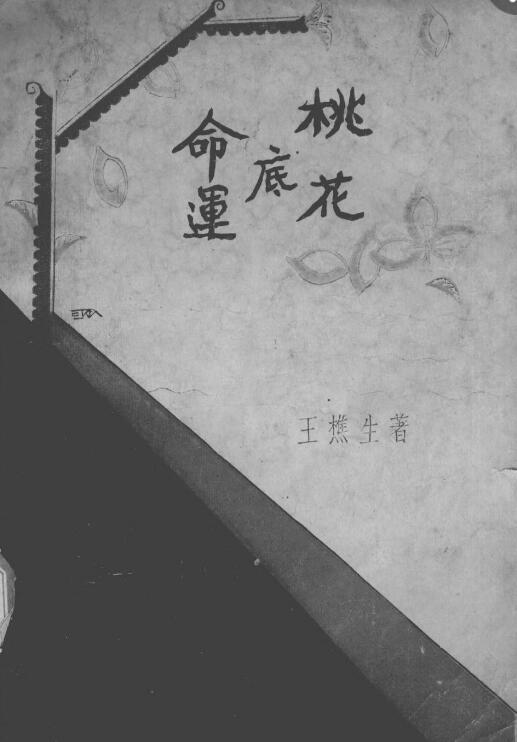 桃花
底
命運
王樵生著